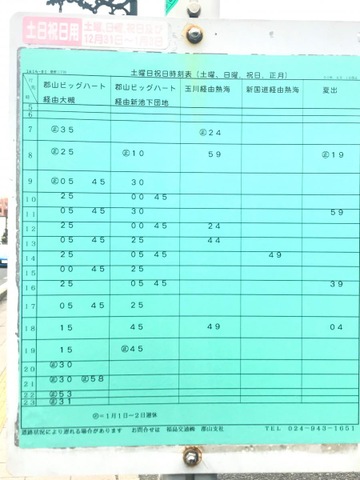 土日祝日用
土曜、日曜、祝日及び
12月31日~1月3日
土曜日祝日時刻表(土曜、日曜、祝日、正月)
郡山ビッグハート 郡山ビッグハート 玉川経由熱海 新国道経由熱海 夏出
経由大槻 経由新池下団地
5
6
7 ㊣35 ㊣24
8 ㊣25 ㊣10 59 ㊣19
9 ㊣05 45 30
10 25 00 45
11 05 45 30 59
12 25 00 45 24
13 05 45 25 44
14 25 05 45 49
15 00 45 25
16 25 05 45 39
17 05 45 25
18 15 45 49 04
19 15 ㊣45
20 ㊣30
21 ㊣30 ㊣58
22 ㊣53
23 ㊣31
㊣=1月1日~2日運休
道路状況により遅れる場合があります お問合せは 福島交通㈱ 郡山支社 TEL 024-943-1651